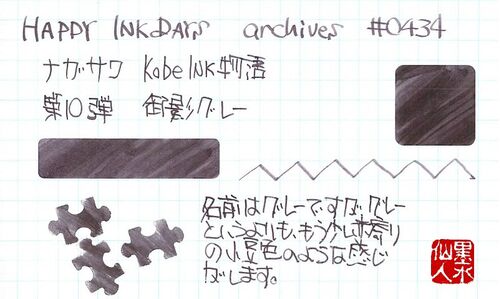 HAPPY INKDAYS archives #0434
ナガサワ Kobe INK物語
第10弾 御影グレー
名前はグレーですが、グレー
というよりも、もう少し赤寄り
の小豆色のような感じ
がします。
墨水
仙人